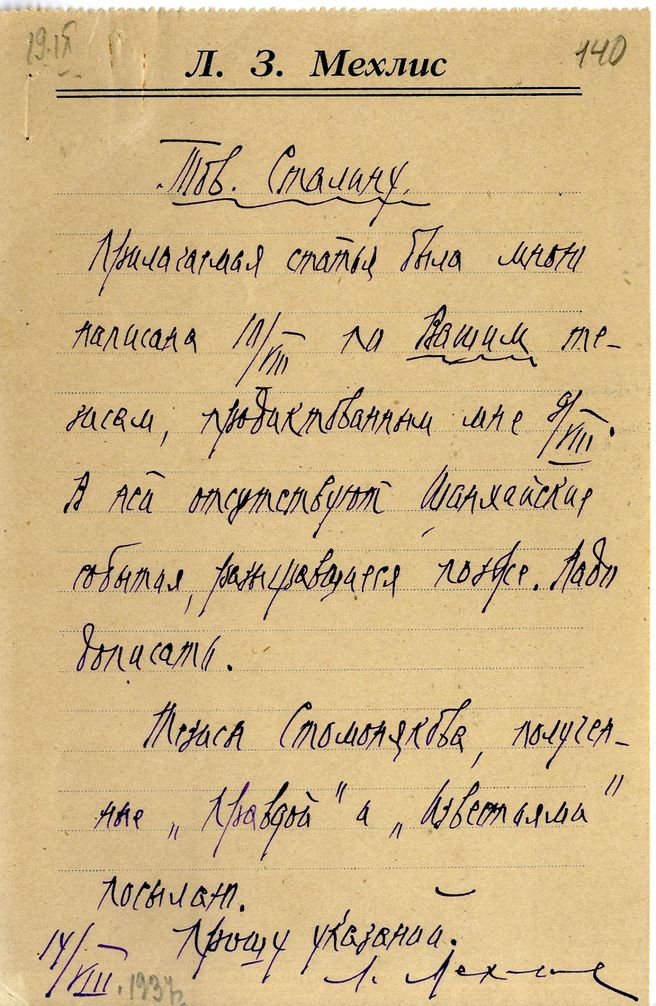 19.IX
140
Л. З. Мехлис
Тов. Сталину.
Прилагаемая статья была мною
написана 10/VIII по Вашим те-
зисам, продиктованным мне 9/VIII.
В ней отсутствуют Шанхайские
события, разыгравшиеся позже. Надо
дописать.
Тезисы Стомонякова, получен-
ные „Правдой" и „Известиями"
посылаю.
Прошу указаний.
14/VIII.1937г
Л. Мехлис